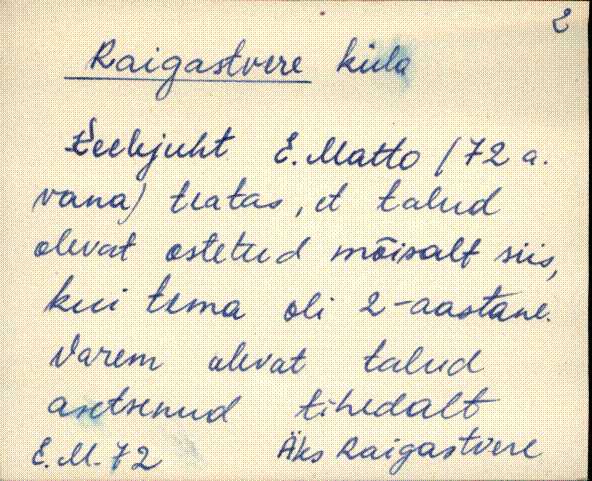 2
Raigastvere küla
Keelejuht E. Matto (72 a.
vana) teatas, et talud
olevat ostetud mõisalt siis,
kui tema oli 2-aastane.
Varem olevat talud
asetsenud tihedalt
E.M. 72 Äks Raigastvere